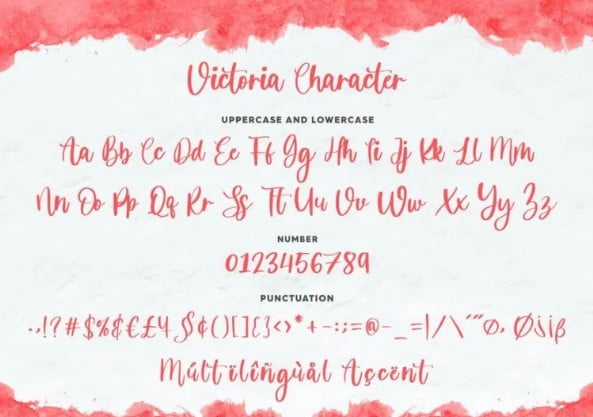 Victoria Character
UPPERCASE AND LOWERCASE
Aa Bb Cc Dd Ee Ff Gg Hh Ii Jj Kk Ll Mm
Nn Oo Pp Qq Rr Ss Tt Uu Vv Ww Xx Yy Zz
NUMBER
0123456789
PUNCTUATION
.,!?#$%&€£¥§¢()[]{}<>*+-:;=@-_=|/\'"ø,Øjiβ
Múltïlîñgùål Açcënt